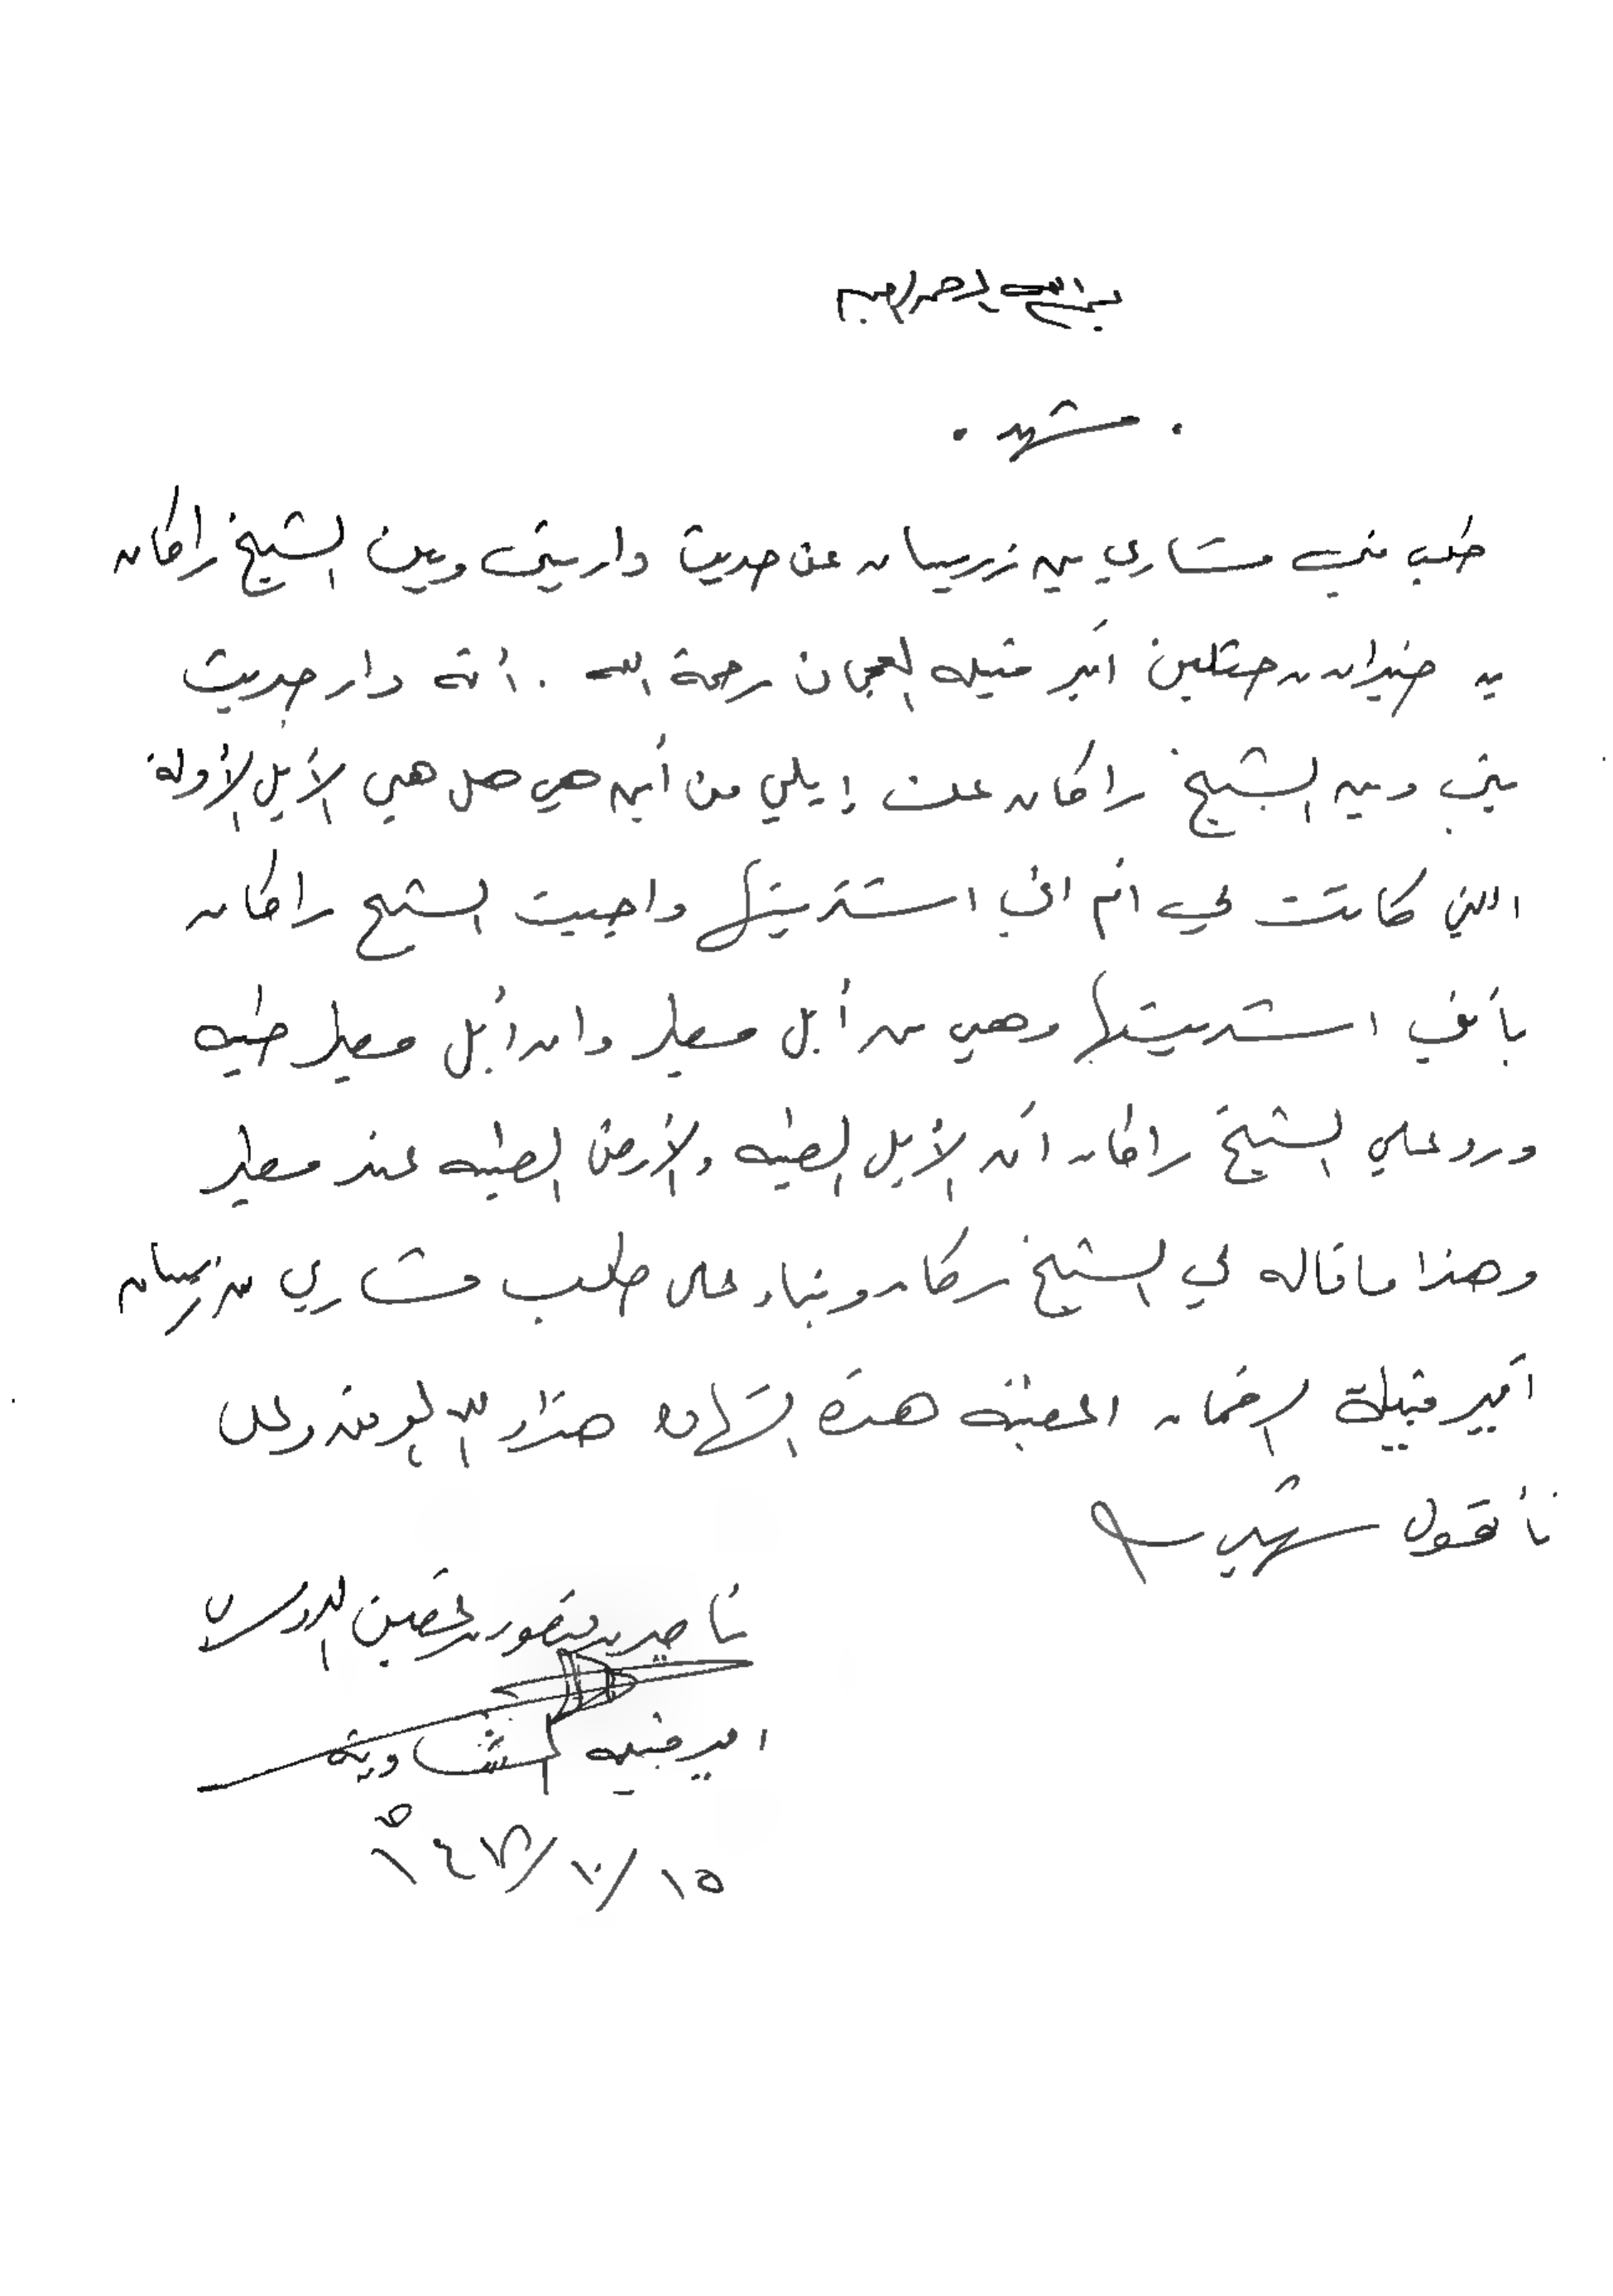 بسم الله الرحمن الرحيم
. مشهد .
طلب مني مشاري بن زريبان عن حديث دار بيني وبين الشيخ راكان
بن ضيدان بن حثلين أمير قبيله العجمان رحمة الله . أنه دار حديث
بيني وبين الشيخ راكان عن إبلي من أين هي هل هي الأبل الأولة
الذي كانت لي أم اني اشتريتها واجبت الشيخ راكان
بأنني اشتريتها وهي من أبل مطير وان أبل مطير طيبه
ورد علي الشيخ راكان أن الأبل الطيبه والأرض الطيبه عند مطير
وهذا ما قاله لي الشيخ ركان وبناء على طلب مشاري بن زريبان
أمير قبيلة الرخمان اعطيته هذه الشهاده هذا والله الموفق وعلى
ما نقول شهيد
ناصر بن منصور بن غصين الدوسري
امير قبيله المشاوية
١٥/١٠/ هـ